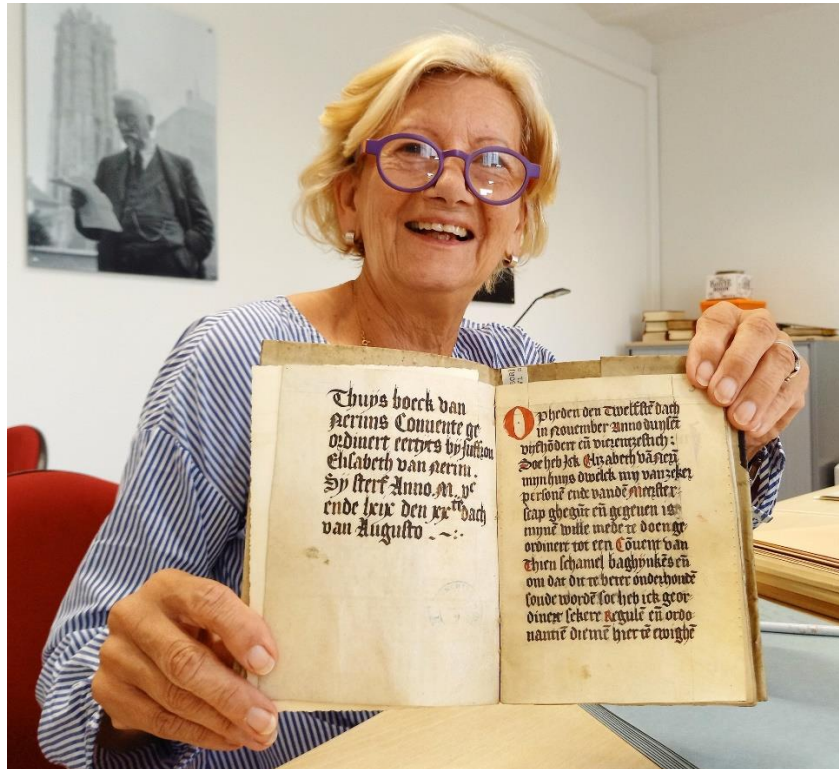 Thuys boeck van
Nerims Conuente ge
ordinert eertyts by Juffrou
Elisabeth van Nerim.
Sy sterf Anno. M. vᶜ
ende lxix den xxᵗᵉ dach
van Augusto
Opheden den twelfstē dach
in nouember Anno duyset
vyfhōdert eñ vierentzestich:
Soe heb Ick Elizabeth vā Nerī
myn huys dwelck my van zeker
personē ende vandē Meester
scap ghegūt eñ gegeuen is
mynē wille mede te doen ge
ordinert tot een Cōuent van
Thien schamel baghynkēs eñ
om dat dit te beter onderhondē
soude wordē soe heb ick geor
dineert sekere Regule eñ ordo
nantiē diemē hier īē ewighē